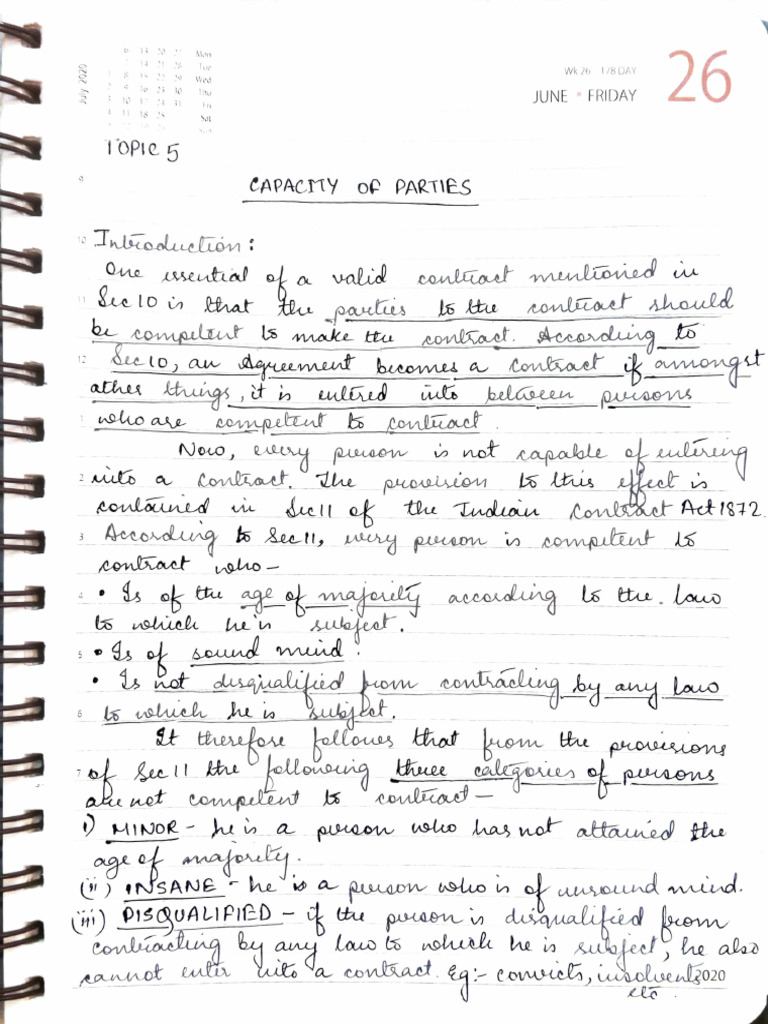 July 2020
Mon
Tue
Wed
Thu
Fri
Sat
Wk 26 178 DAY
JUNE • FRIDAY
26
TOPIC 5
CAPACITY OF PARTIES
Introduction:
One essential of a valid contract mentioned in
Sec 10 is that the parties to the contract should
be competent to make the contract. According to
Sec 10, an Agreement becomes a contract if amongst
other things, it is entered into between persons
who are competent to contract.
Now, every person is not capable of entering
into a contract. The provision to this effect is
contained in Sec 11 of the Indian Contract Act 1872.
According to Sec 11, every person is competent to
contract who –
• Is of the age of majority according to the law
to which he is subject.
• Is of sound mind.
• Is not disqualified from contracting by any law
to which he is subject.
It therefore follows that from the provisions
of Sec 11 the following three categories of persons
are not competent to contract –
i) MINOR – he is a person who has not attained the
age of majority.
(ii) INSANE – he is a person who is of unsound mind.
(iii) DISQUALIFIED – if the person is disqualified from
contracting by any law to which he is subject, he also
cannot enter into a contract. Eg:- convicts, insolvents
2020
etc.